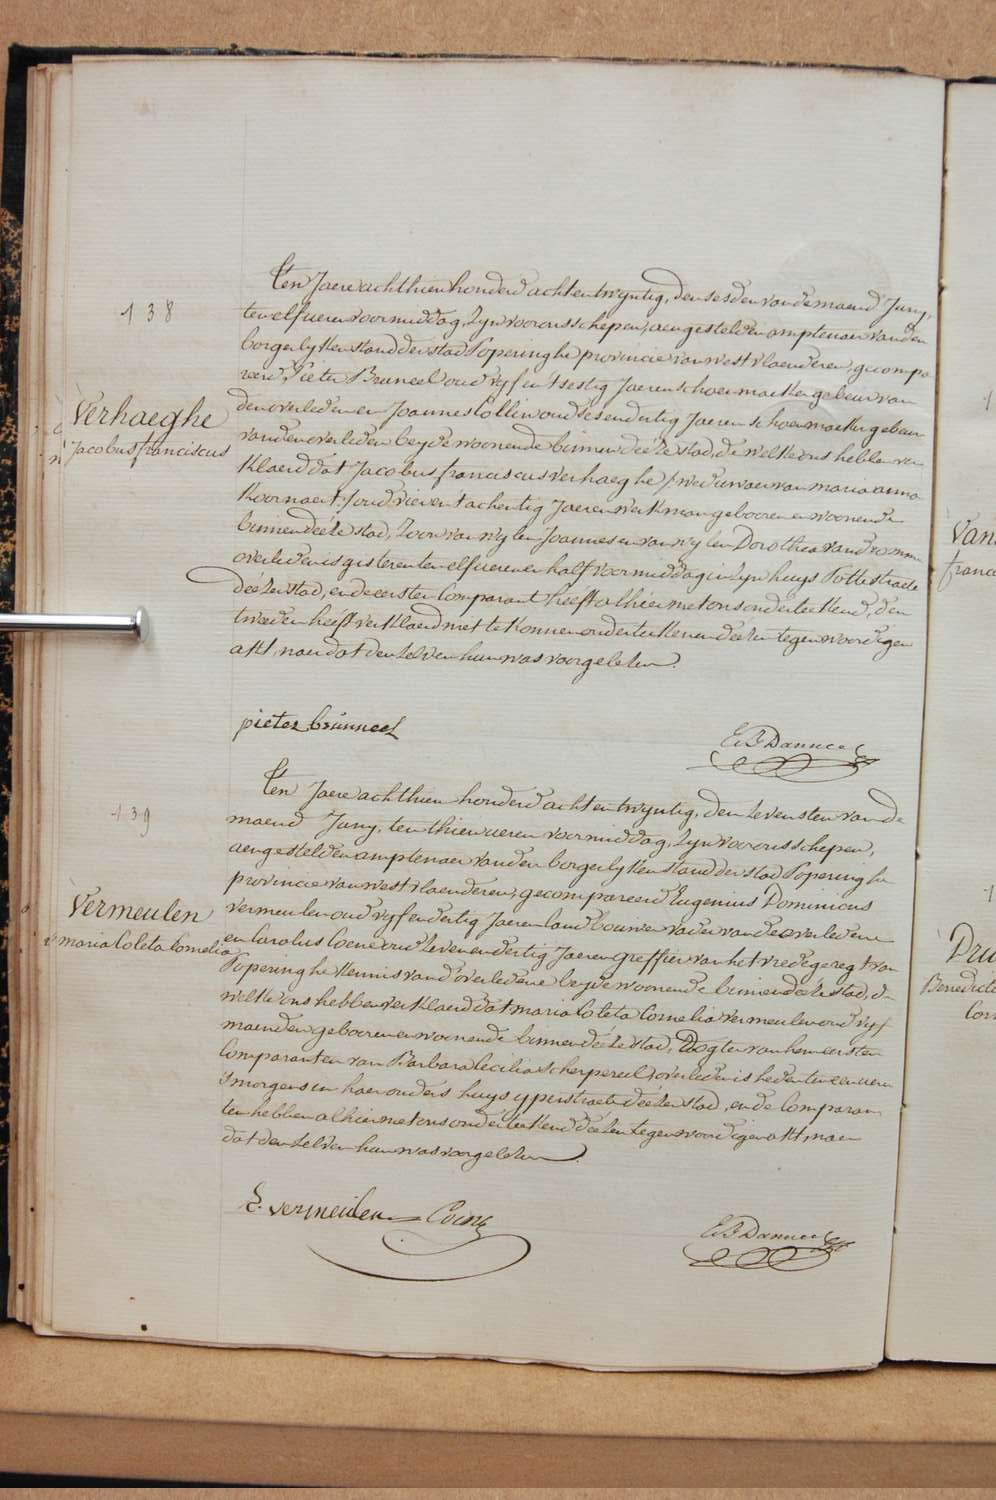 138
Verhaeghe
Jacobus franciscus
Ten Jaere achthien honderd achtentwyntig, den sesden van de maend Juny,
ten elf ueren voormiddag, Zyn voor ons schepen, aengestelden amptenaer van den
borgerlyken stand der stad Poperinghe provincie van westvlaenderen, gecompa-
reerd Pieter Bruneel oud vyf en tsestig Jaeren schoenmaeker gebeur van
den overledenen Joannes Collin oud ses en dertig Jaeren schoenmaeker gebeur
van den overleden beyde woonende binnen déeze stad, de welke ons hebben ver-
klaerd dat Jacobus franciscus verhaeghe / weduwaer van maria anna
Koornaert / oud vier en tachentig Jaeren werkman gebooren en woonende
binnen déeze stad, Zoon van wylen Joannes en van wylen Dorothea vandromme
overleden is gisteren ten elf ueren en half voormiddag in Zyn huys Pottestraete
déezer stad, en de eersten Comparant heeft alhier met ons onderteekend, den
tweeden heeft verklaerd niet te konnen onderteekenen déezen tegenwoordigen
akt, naer dat den Zelven hun was voorgelezen.
pieter brúnneel
E B Dannee
139
Vermeulen
maria Coleta Cornelia
Ten Jaere achthien honderd achtentwyntig, den Zevensten van de
maend Juny, ten thien ueren voormiddag, Zyn voor ons schepen,
aengestelden amptenaer van den borgerlyken stand der stad Poperinghe
provincie van westvlaenderen, gecompareerd Eugenius Dominicus
vermeulen oud vyf en dertig Jaeren landbouwer vader van de overledene
en Carolus Coene oud Zeven en dertig Jaeren Greffier van het vredegeregt van
Poperinghe kennis van d'overledene beyde woonende binnen déeze stad, de
welke ons hebben verklaerd dat maria Coleta Cornelia vermeulen oud vyf
maenden gebooren en woonende binnen déeze stad, Dogter van hem eersten
Comparant en van Barbara Cecilia Scherpereel, overleden is heden ten een uere
'smorgens in haer ouders huys yperstraete déezer stad, en de Comparan-
ten hebben alhier met ons onderteekend déezen tegenwoordigen akt, naer
dat den Zelven hun was voorgelezen.
E. vermeulen Coene
E B Dannee
Van
Benedicte